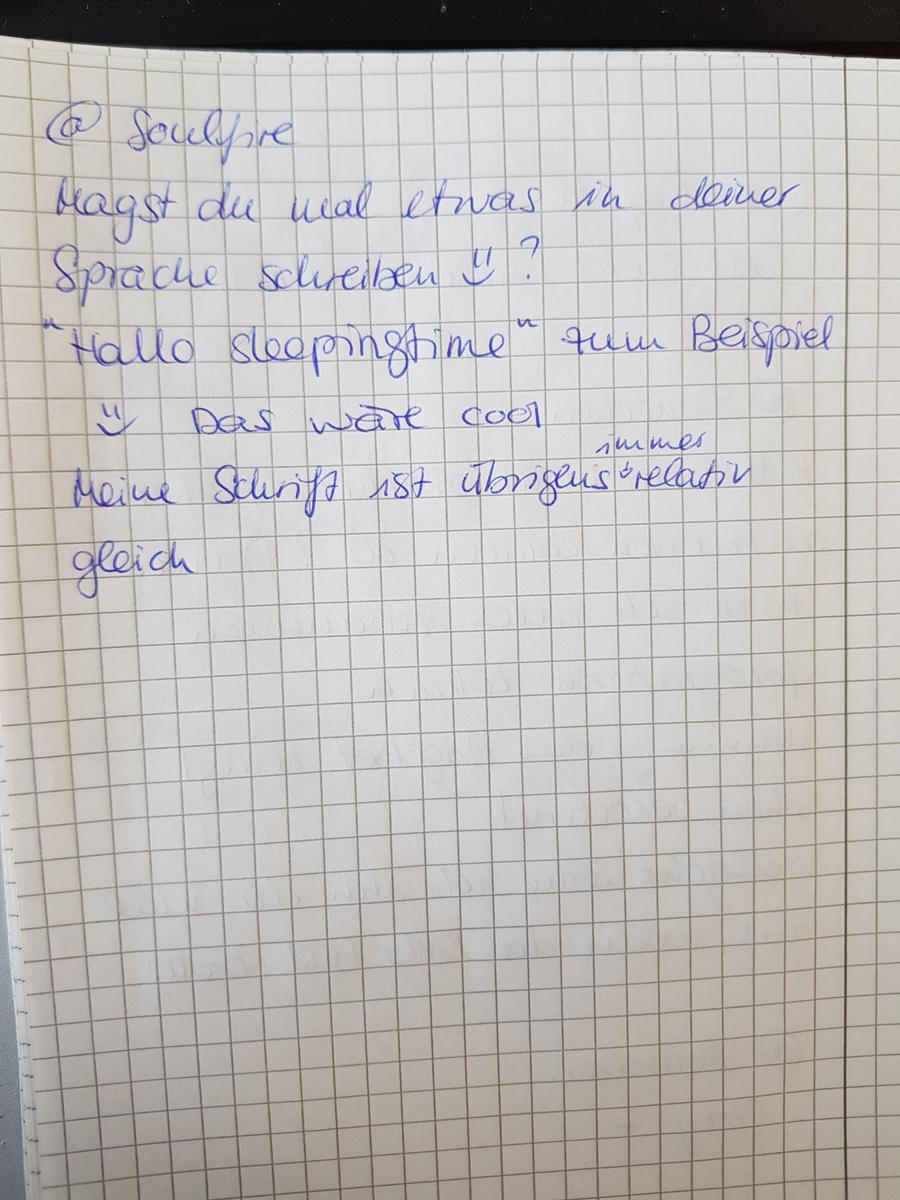 @ Soulfire
Magst du mal etwas in deiner
Sprache schreiben ü?
"Hallo sleepingtime" zum Beispiel
ü Das wäre cool
immer
Meine Schrift ist übrigens relativ
gleich